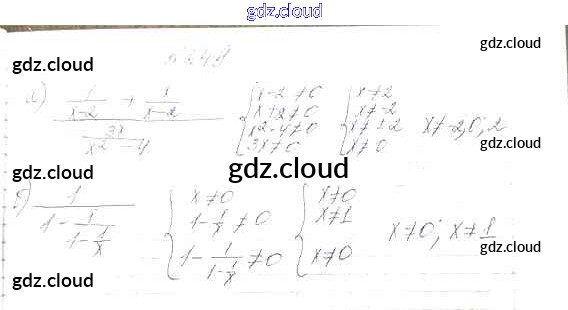 gdz.cloud
№249
gdz.cloud gdz.cloud
а) (1/(x-2) + x/(x-2)) / (3x/(x²-4)) { x-2≠0 x+2≠0 x²-4≠0 3x≠0 { x≠2 x≠-2 x≠±2 x≠0 x≠-2;0;2
gdz.cloud gdz.cloud gdz.cloud
б) 1/(1-1/(1-1/x)) { x≠0 1-1/x≠0 1-1/(1-1/x)≠0 { x≠0 x≠1 x≠0 x≠0; x≠1
gdz.cloud
gdz.cloud gdz.cloud